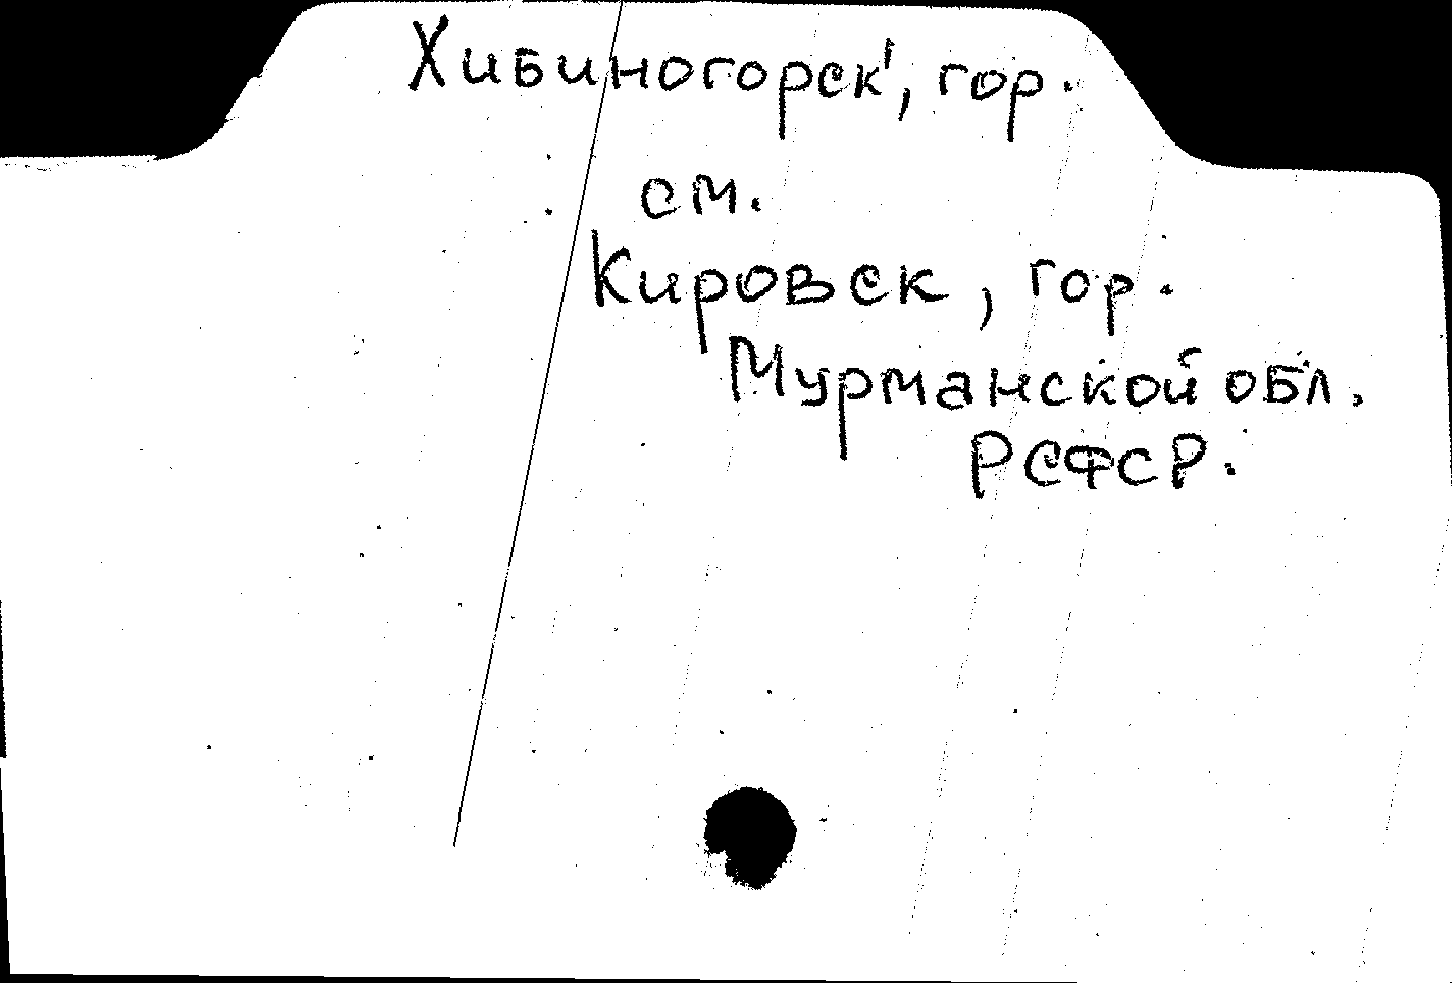 Хибиногорск', гор.
см.
Кировск, гор.
Мурманской обл.
РСФСР.